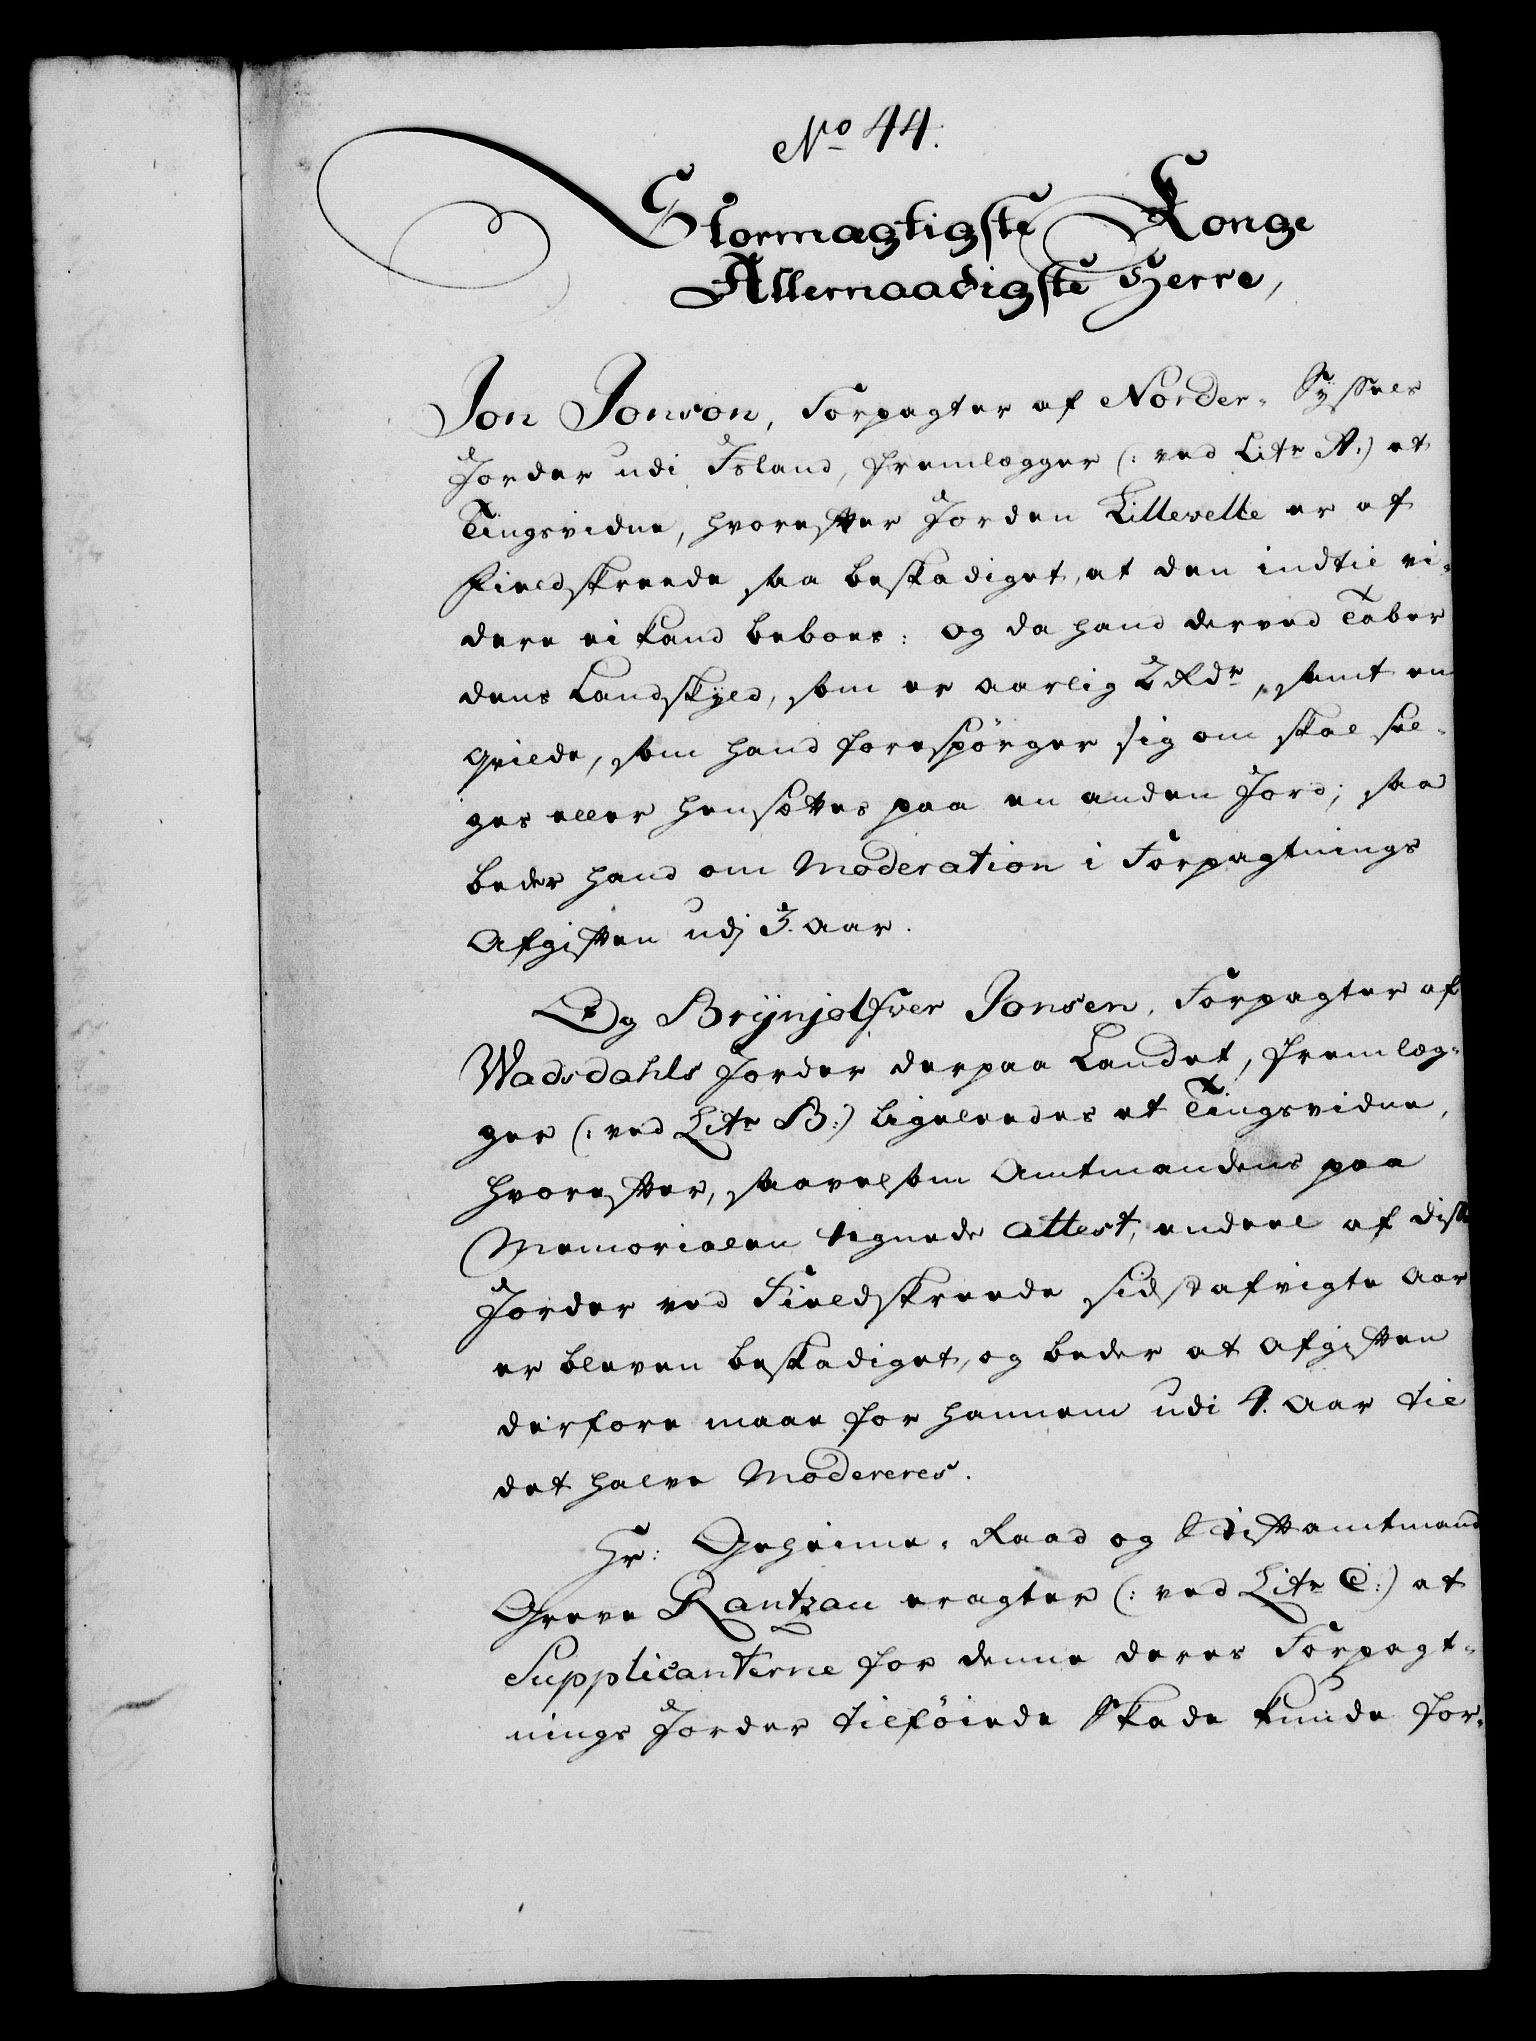 No 44.
Stormægtigste Konge
Allernaadigste Herre,
Jon Jonson, Forpagter af Norder-Syssels
Jorder udi Island, fremlægger (: ved Litr A:) et
Tingsvidne, hvorefter Jorden Lillevelle er af
Fieldskreede saa beskadiget, at den indtil vi-
dere ei kand beboes: og da hand derved taber
dens Landskyld, som er aarlig 2 Rdr, samt en
Qvilde, som hand forespörger sig om skal sæl-
ges eller hensættes paa en anden Jord; saa
beder hand om Moderation i Forpagtnings
Afgiften udj 3. Aar.
Og Brÿnjolfver Jonsen, Forpagter af
Wadsdahls Jorder derpaa Landet, fremlæg-
ger (: ved Litr B:) ligeleedes et Tingsvidne,
hvorefter, saavelsom Amtmandens paa
Memorialen tegnede Attest, endeel af disse
Jorder ved Fieldskreede sidstafvigte Aar
er bleven beskadiget, og beder at Afgiften
derfore maae for hannem udi 4. Aar til
det halve Modereres.
Hr: Geheime-Raad og Stiftamtmand
Greve Rantzau eragter (: ved Litr C:) at
Supplicanterne for denne deres Forpagt-
nings Jorder tilföiede Skade kunde for-